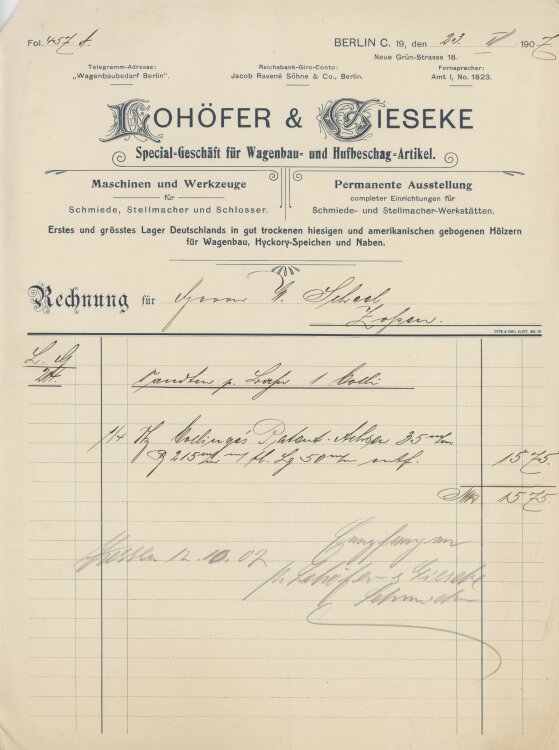 Fol. 457
BERLIN C. 19, den 23. 1907
Neue Grün-Strasse 18.
Telegramm-Adresse:
„Wagenbaubedarf Berlin".
Reichsbank-Giro-Conto:
Jacob Ravené Söhne & Co., Berlin.
Fernsprecher:
Amt I, No. 1823.
LOHÖFER & GIESEKE
Special-Geschäft für Wagenbau- und Hufbeschag-Artikel.
Maschinen und Werkzeuge
für
Schmiede, Stellmacher und Schlosser.
Permanente Ausstellung
completer Einrichtungen für
Schmiede- und Stellmacher-Werkstätten.
Erstes und grösstes Lager Deutschlands in gut trockenen hiesigen und amerikanischen gebogenen Hölzern
für Wagenbau, Hyckory-Speichen und Naben.
Rechnung für Herrn W.
Zossen.
Sandten p. Bahn 1 Colli
1/4 Collinge's Patent-Achsen 35 m/m
215 m/m 50 m/m 15 75
Mk 15 75
12.10.07 Empfangen
p. Lohöfer & Gieseke